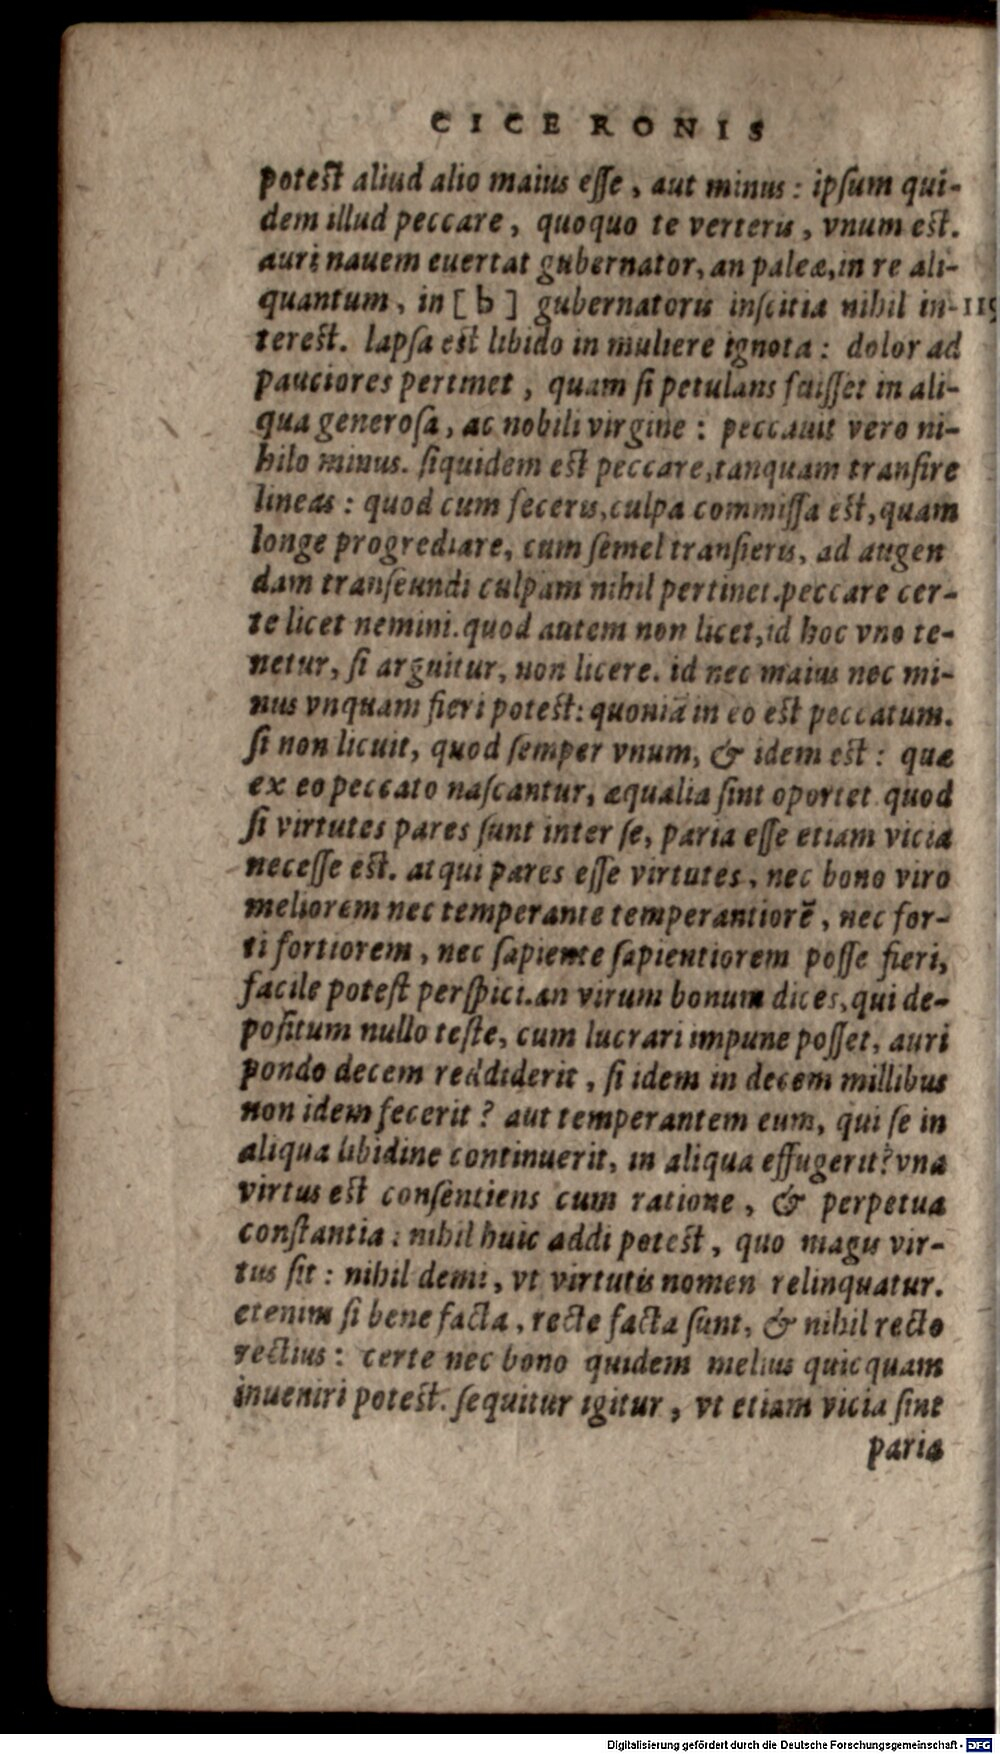 CICERONIS
potest aliud alio maius esse, aut minus: ipsum qui-
dem illud peccare, quoquo te verteris, vnum est.
auri nauem euertat gubernator, an paleæ, in re ali-
quantum, in [b] gubernatoris inscitia nihil in-
terest. lapsa est libido in muliere ignota: dolor ad
pauciores pertinet, quam si petulans fuisset in ali-
qua generosa, ac nobili virgine: peccauit vero ni-
hilo minus. siquidem est peccare, tanquam transire
lineas: quod cum feceris, culpa commissa est, quam
longe progrediare, cum semel transieris, ad augen
dam transeundi culpam nihil pertinet. peccare cer-
te licet nemini. quod autem non licet, id hoc vno te-
netur, si arguitur, non licere. id nec maius nec mi-
nus vnquam fieri potest: quoniā in eo est peccatum.
si non licuit, quod semper vnum, & idem est: quæ
ex eo peccato nascantur, æqualia sint oportet. quod
si virtutes pares sunt inter se, paria esse etiam vicia
necesse est. atqui pares esse virtutes, nec bono viro
meliorem nec temperante temperantiorē, nec for-
ti fortiorem, nec sapiente sapientiorem posse fieri,
facile potest perspici. an virum bonum dices, qui de-
positum nullo teste, cum lucrari impune posset, auri
pondo decem reddiderit, si idem in decem millibus
non idem fecerit? aut temperantem eum, qui se in
aliqua libidine continuerit, in aliqua effugerit? vna
virtus est consentiens cum ratione, & perpetua
constantia: nihil huic addi potest, quo magis vir-
tus sit: nihil demi, vt virtutis nomen relinquatur.
etenim si bene facta, recte facta sunt, & nihil recto
rectius: certe nec bono quidem melius quicquam
inueniri potest. sequitur igitur, vt etiam vicia sint
paria
Digitalisierung gefördert durch die Deutsche Forschungsgemeinschaft - DFG